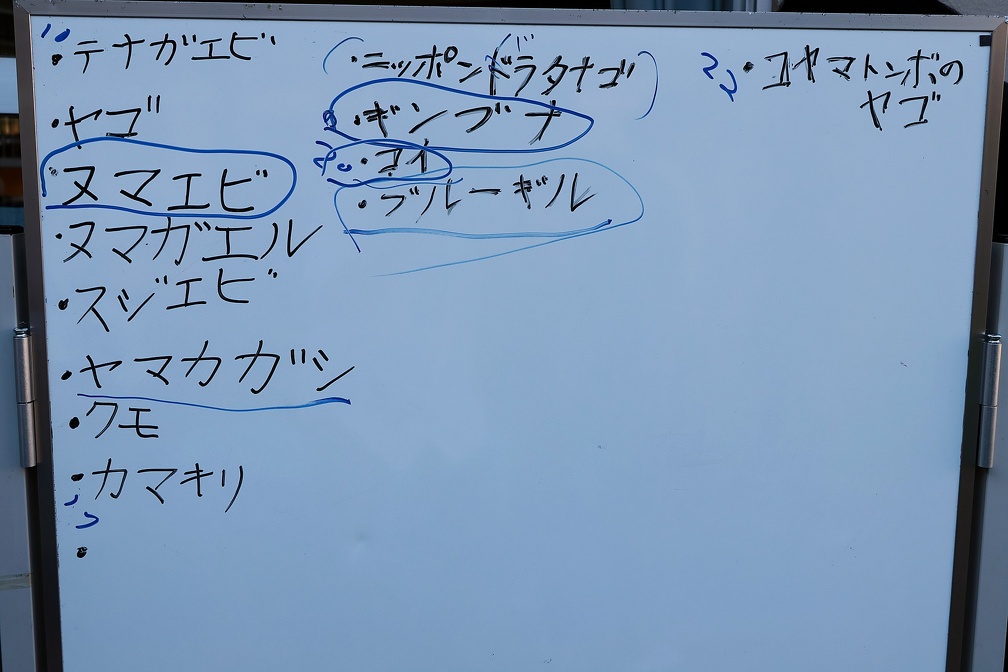 ・テナガエビ
・ヤゴ
・ヌマエビ
・ヌマガエル
・スジエビ
・ヤマカガシ
・クモ
・カマキリ
・
(・ニッポンバラタナゴ)
・ギンブナ
・コイ
・ブルーギル
・コヤマトンボの
ヤゴ